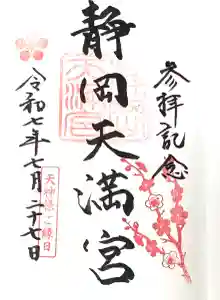 参拝記念
静岡天満宮
令和七年七月二十七日
天神様ご縁日